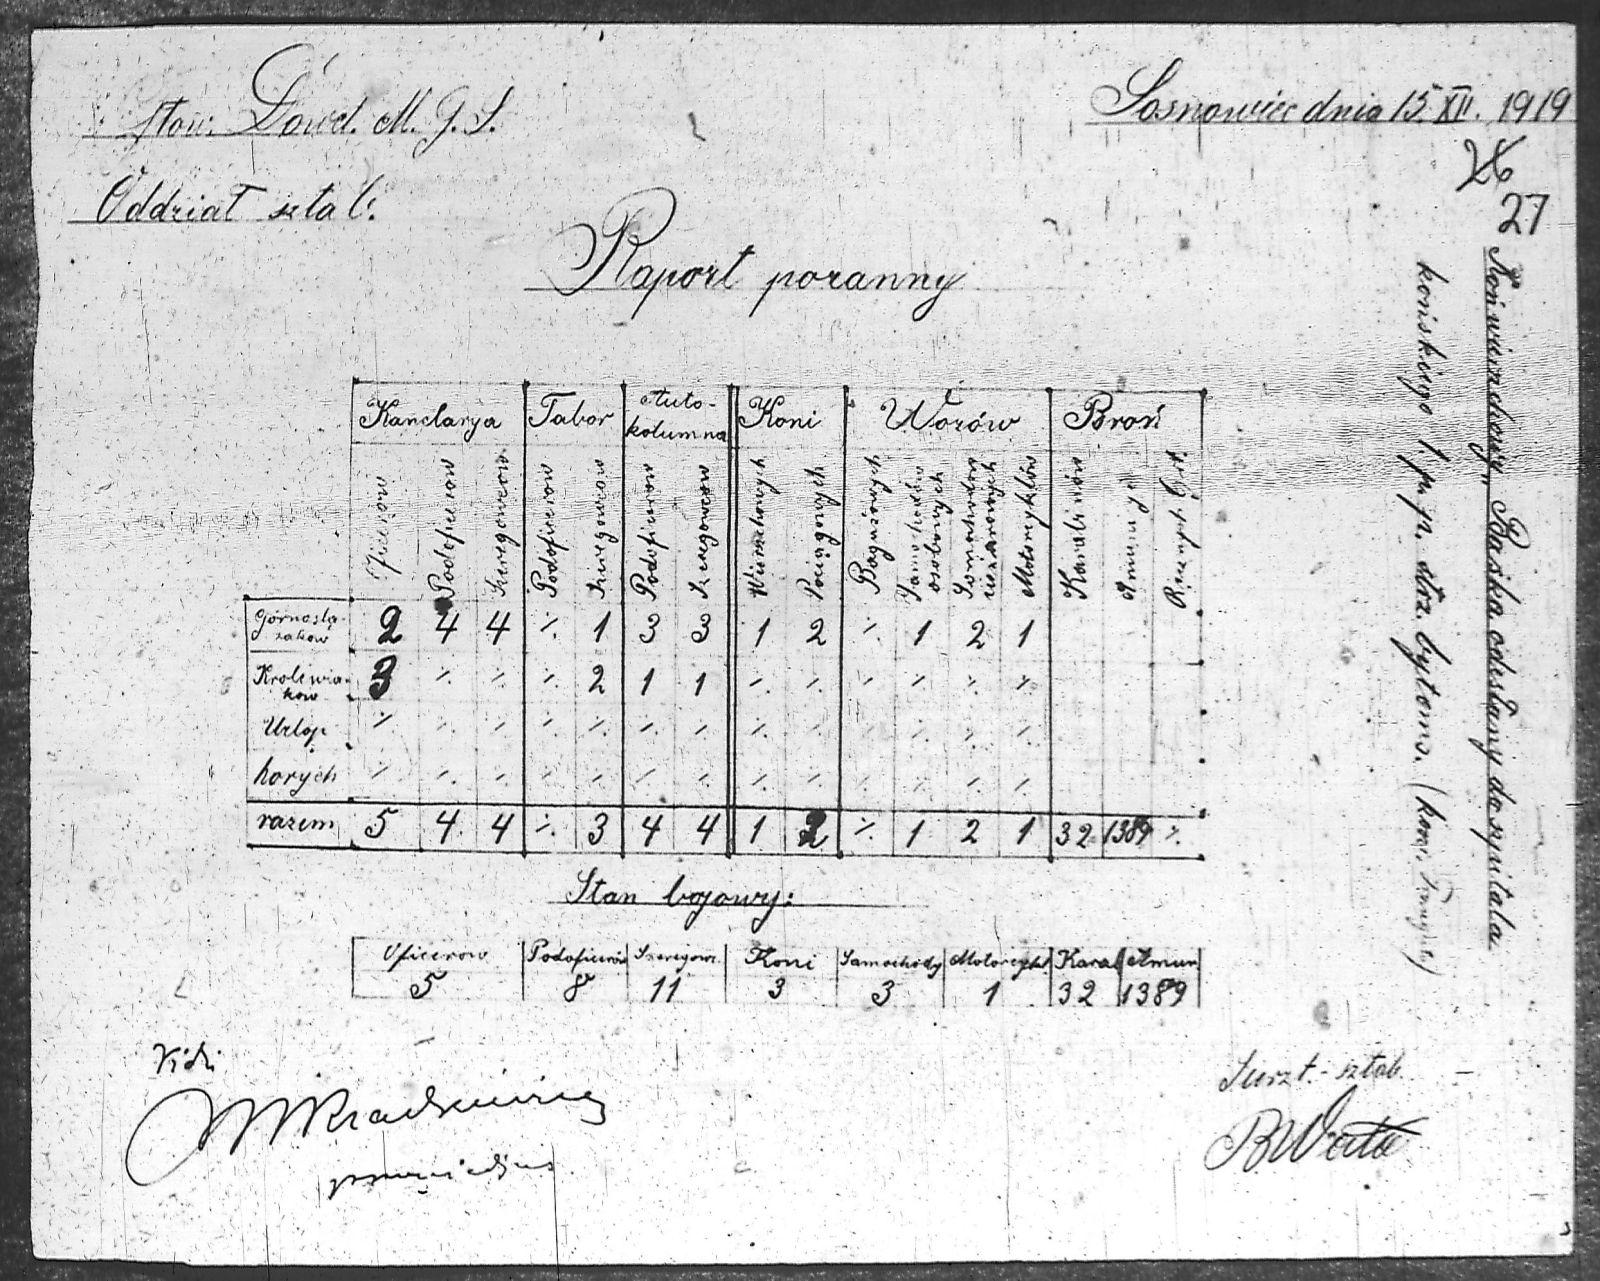 Dowd. M. G. S.
Sosnowiec dnia 15. XII. 1919
26
27
Oddział sztab.
Raport poranny
Kanclarya Tabor Auto-kolumna Koni Wozów Broń
Oficerów Podoficerów Szeregowców Podoficerów Szeregowców Podoficerów Szeregowców Wierzchowych Pociągowych Bagażowych Samochodów osobowych Samochodów ciężarowych Motorcyklów Karabinów Amunycyi
Górnoślązaków 2 4 4 ⁒ 1 3 3 1 2 ⁒ 1 2 1
Królewiaków 3 ⁒ ⁒ ⁒ 2 1 1 ⁒ ⁒ ⁒ ⁒ ⁒ ⁒
Urlop ⁒ ⁒ ⁒ ⁒ ⁒ ⁒ ⁒ ⁒ ⁒ ⁒ ⁒ ⁒ ⁒
horych ⁒ ⁒ ⁒ ⁒ ⁒ ⁒ ⁒ ⁒ ⁒ ⁒ ⁒ ⁒ ⁒
razem 5 4 4 ⁒ 3 4 4 1 2 ⁒ 1 2 1 32 1389 ⁒
Stan bojowy:
Oficerow Podoficerów Szeregow. Koni Samochody Motorcykl Karab Amun
5 8 11 3 3 1 32 1389
Koń wierzchowy "Baśka" odesłany do szpitala
końskiego 1. p. p. strz. bytoms.
Vidi
sztab.